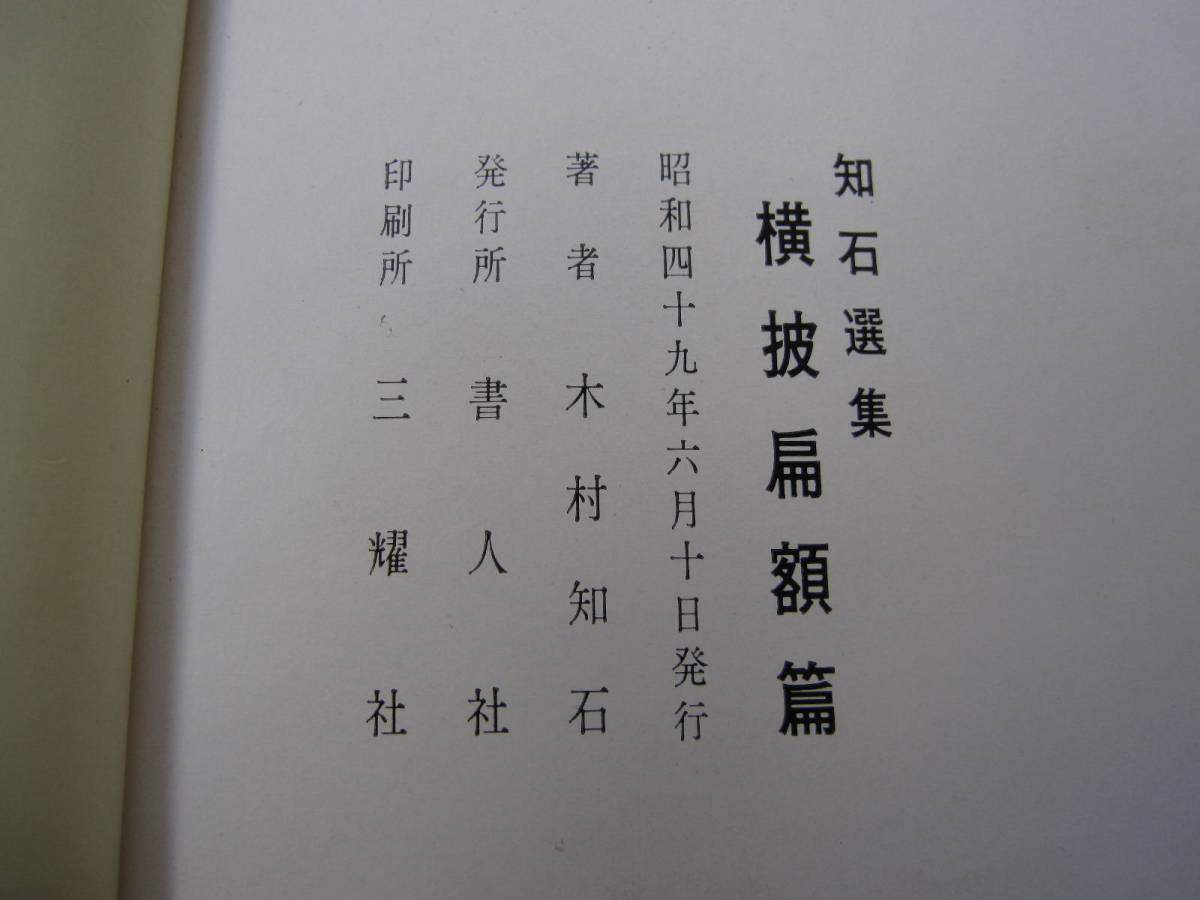 知石選集
横披扁額篇
昭和四十九年六月十日発行
著者 木村知石
発行所 書人社
印刷所 三耀社